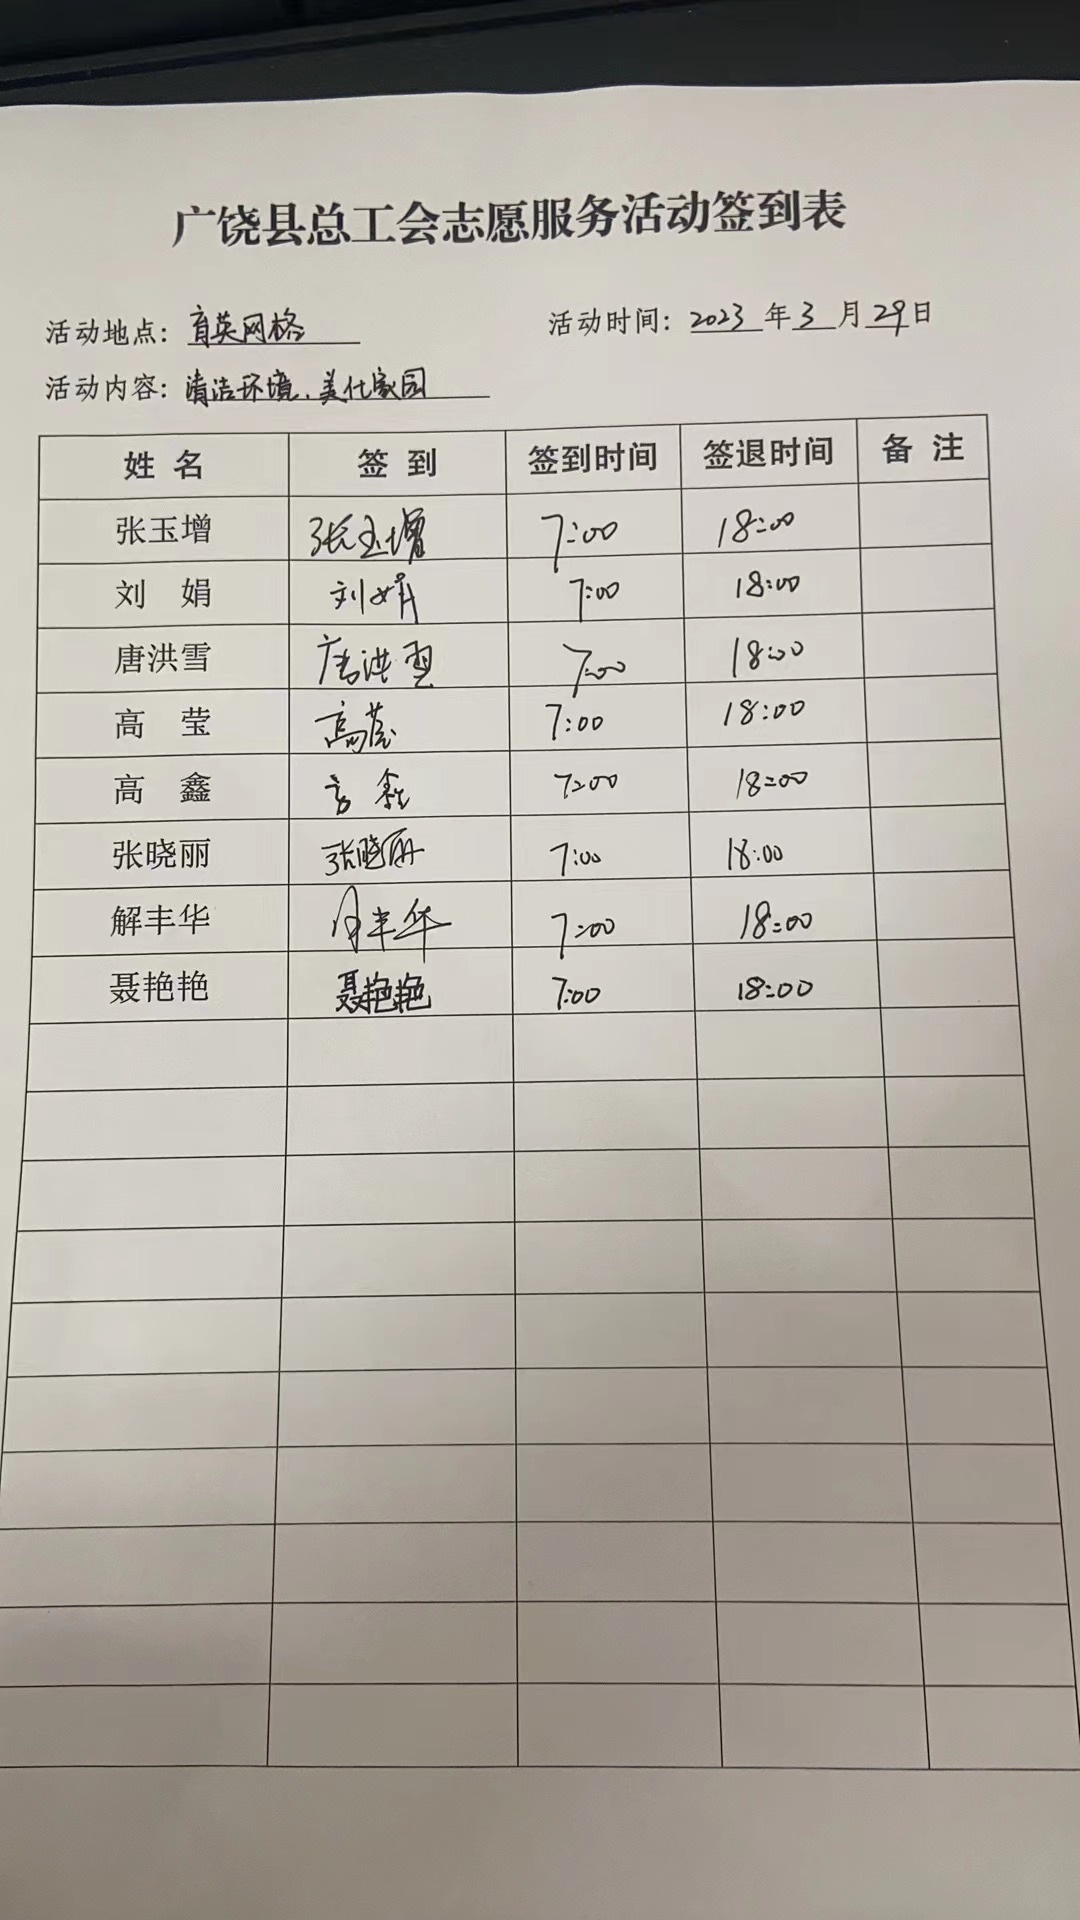 广饶县总工会志愿服务活动签到表
活动地点：育英网格 活动时间：2023年3月29日
活动内容：清洁环境、美化家园
姓 名 签 到 签到时间 签退时间 备 注
张玉增 张玉增 7:00 18:00
刘 娟 刘娟 7:00 18:00
唐洪雪 唐洪雪 7:00 18:00
高 莹 高莹 7:00 18:00
高 鑫 高鑫 7:00 18:00
张晓丽 张晓丽 7:00 18:00
解丰华 解丰华 7:00 18:00
聂艳艳 聂艳艳 7:00 18:00